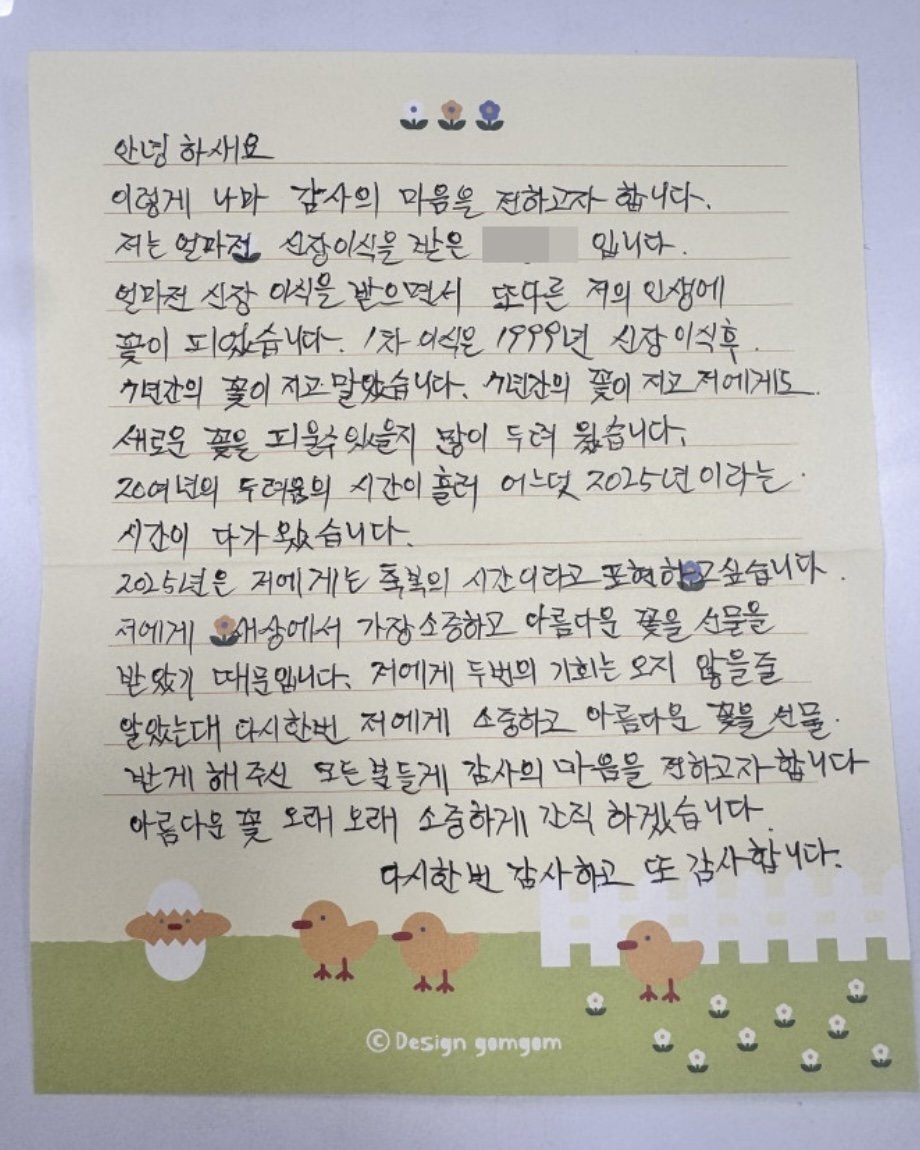 안녕 하새요
이렇게 나마 감사의 마음을 전하고자 합니다.
저는 얼마전 신장이식을 받은 입니다.
얼마전 신장 이식을 받으면서 또다른 저의 인생에
꽃이 피었습니다. 1차 이식은 1999년 신장이식후.
7년간의 꽃이 지고 말았습니다. 7년간의 꽃이 지고 저에게도.
새로운 꽃을 피울수있을지 많이 두려 웠습니다.
20여년의 두려움의 시간이 흘러 어느덧 2025년이라는.
시간이 다가 왔습니다.
2025년은 저에게는 축복의 시간이라고 표현하고싶습니다.
저에게 새상에서 가장소중하고 아름다운 꽃을 선물을
받았기 때문입니다. 저에게 두번의 기회는 오지 않을줄
알았는대 다시한번 저에게 소중하고 아름다운 꽃을 선물.
받게 해주신 모든분들게 감사의 마음을 전하고자합니다
아름다운 꽃 오래 오래 소중하게 간직 하겠습니다.
다시한번 감사하고 또 감사합니다.
© Design gomgom